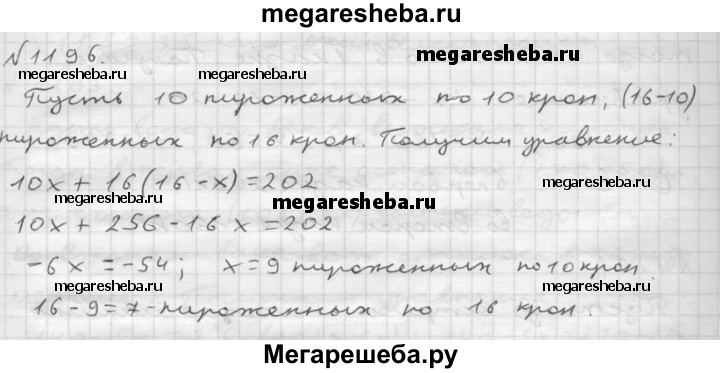 megaresheba.ru
№1196.
megaresheba.ru
megaresheba.ru megaresheba.ru
Пусть 10 пироженных по 10 крон, (16-10)
пироженных по 16 крон. Получим уравнение:
10x + 16(16-x)=202
megaresheba.ru megaresheba.ru
megaresheba.ru
10x + 256-16x=202
-6x = -54; x=9 пироженных по 10 крон.
megaresheba.ru megaresheba.ru
16-9=7-пироженных по 16 крон.
Мегарешеба.ру